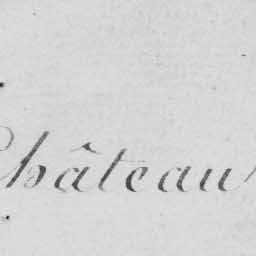 Château